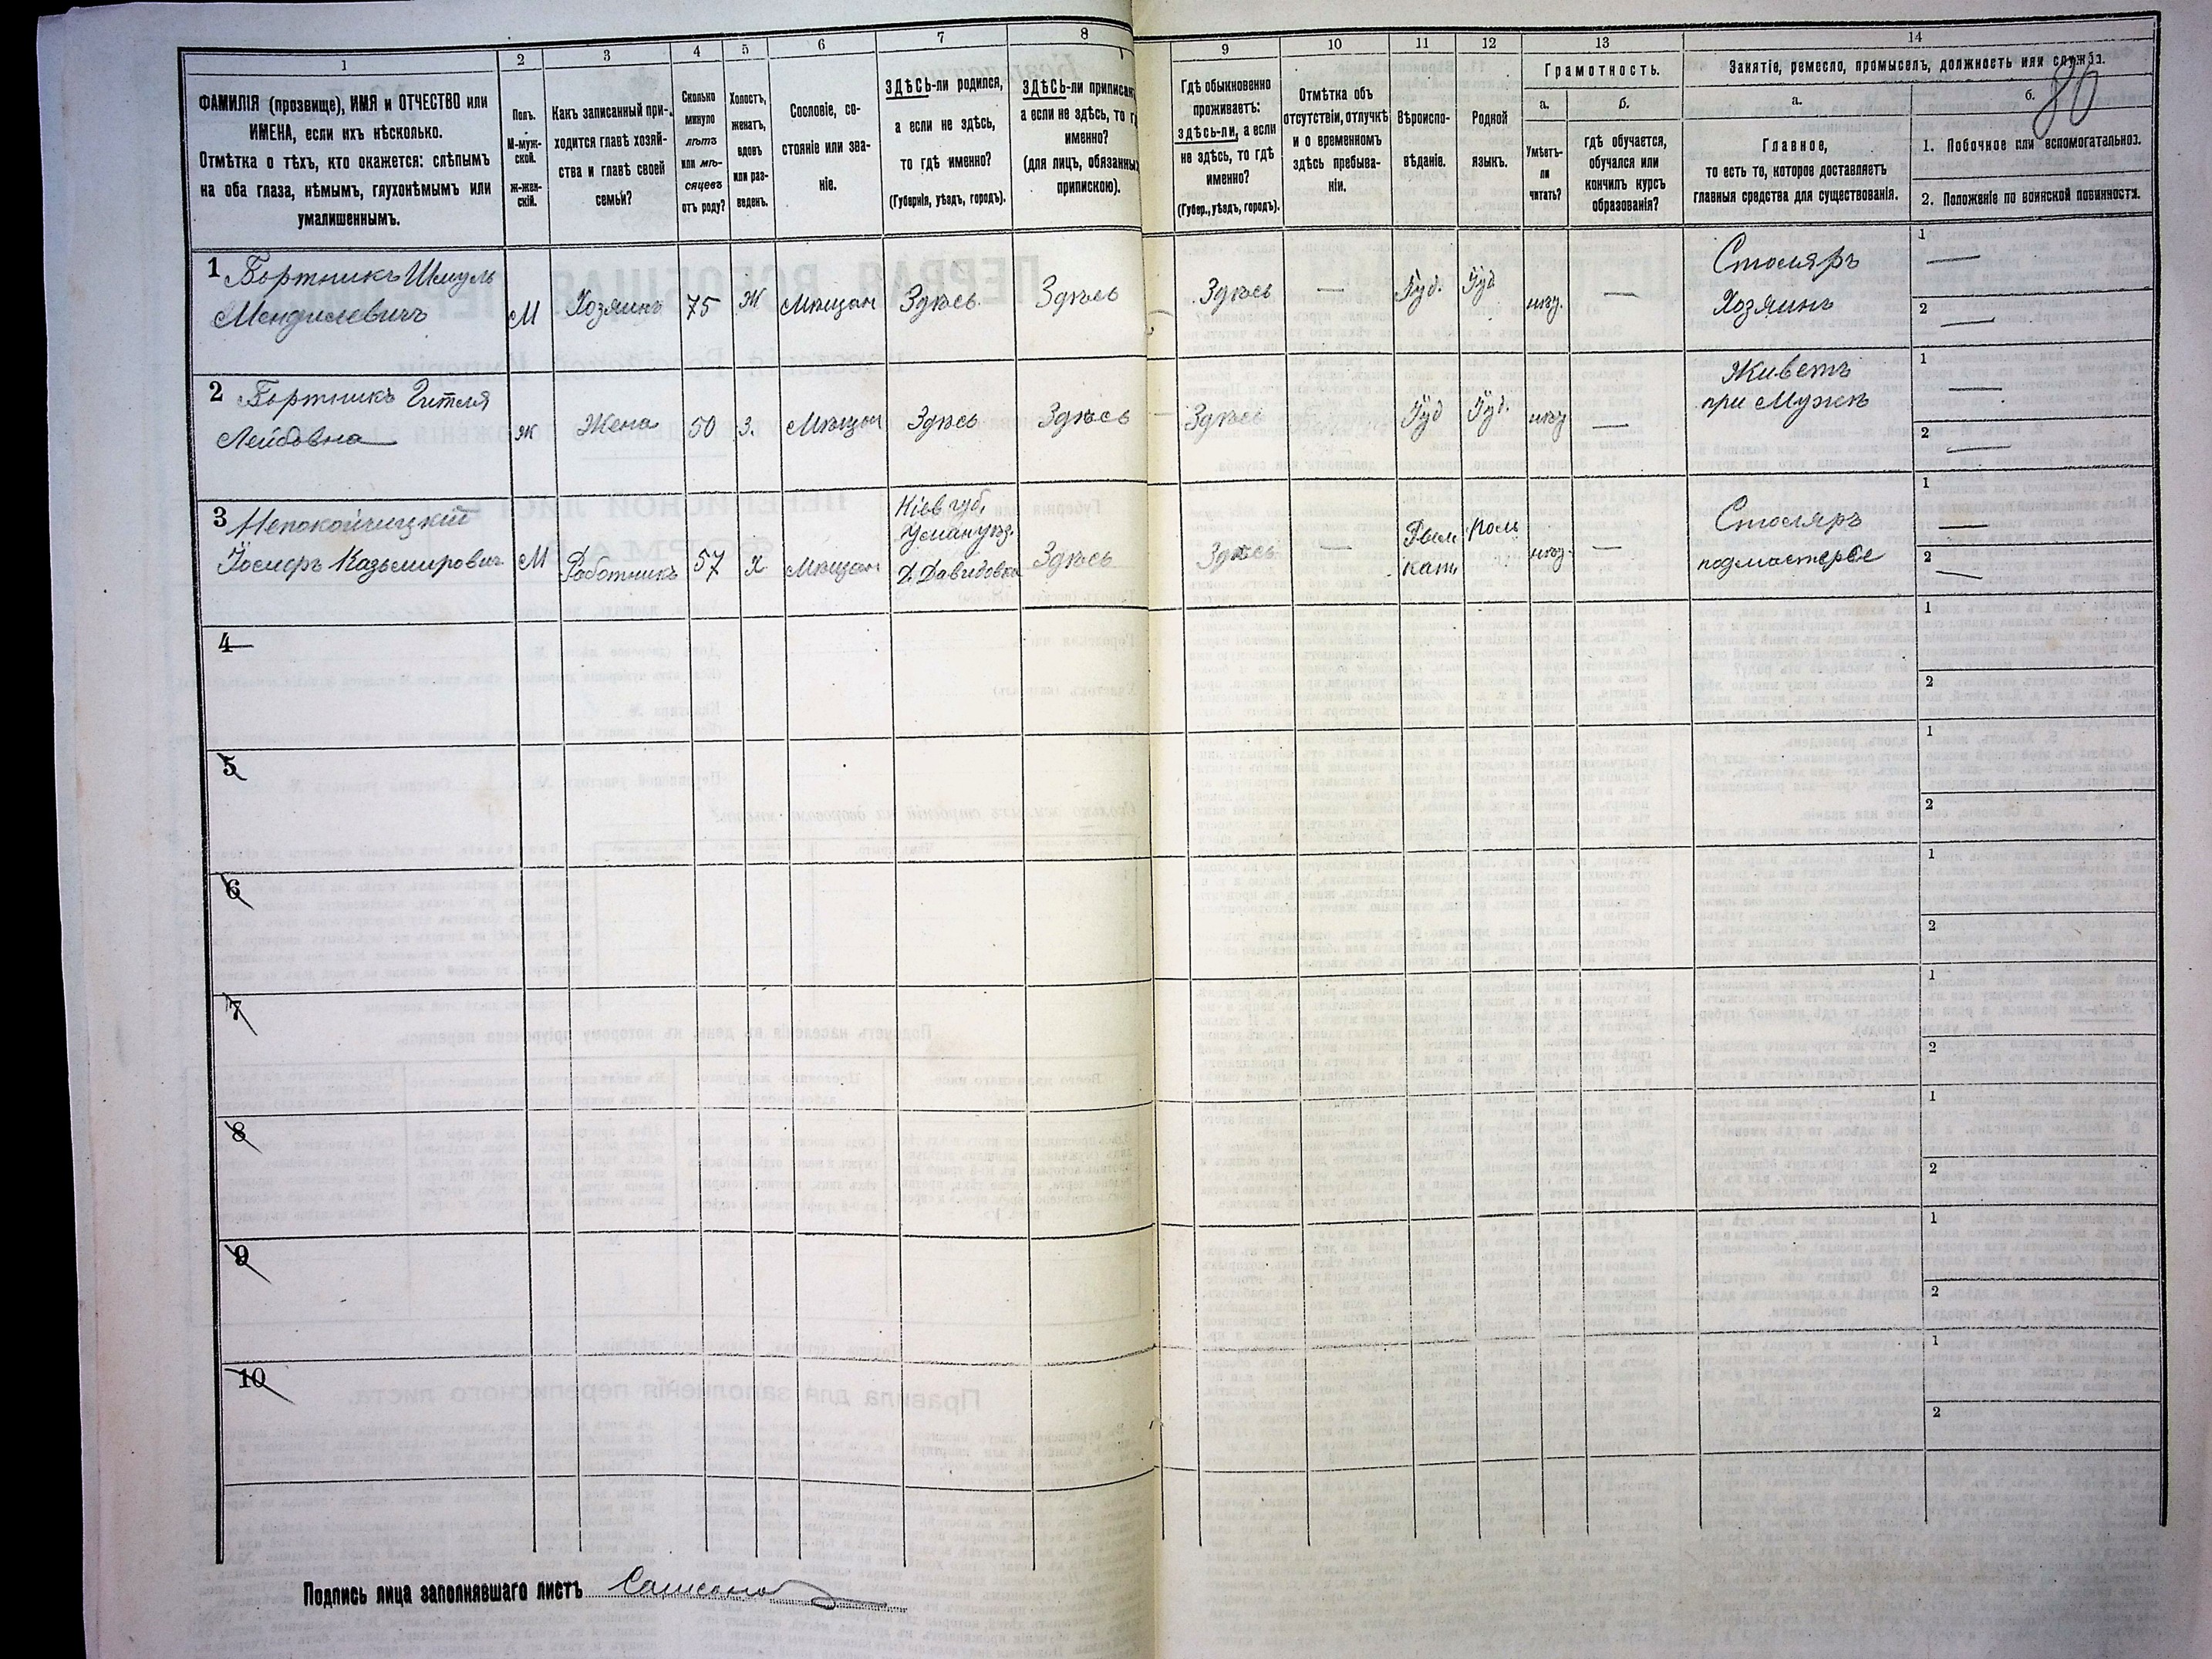 1 2 3 4 5 6 7 8 9 10 11 12 13 14
ФАМИЛІЯ (прозвище), ИМЯ и ОТЧЕСТВО или
ИМЕНА, если ихъ нѣсколько.
Отмѣтка о тѣхъ, кто окажется: слѣпымъ
на оба глаза, нѣмымъ, глухонѣмымъ или
умалишеннымъ.
Полъ.
М-муж-
ской.
Ж-жен-
скій.
Какъ записанный при-
ходится главѣ хозяй-
ства и главѣ своей
семьи?
Сколько
минуло
лѣтъ
или мѣ-
сяцевъ
отъ роду?
Холостъ,
женатъ,
вдовъ
или раз-
веденъ.
Сословіе, со-
стояніе или зва-
ніе.
ЗДѢСЬ-ли родился,
а если не здѣсь,
то гдѣ именно?
(Губернія, уѣздъ, городъ).
ЗДѢСЬ-ли приписанъ
а если не здѣсь, то г
именно?
(для лицъ, обязанных
припискою).
Гдѣ обыкновенно
проживаетъ:
здѣсь-ли, а если
не здѣсь, то гдѣ
именно?
(Губер., уѣздъ, городъ).
Отмѣтка объ
отсутствіи, отлучкѣ
и о временномъ
здѣсь пребыва-
ніи.
Вѣроиспо-
вѣданіе.
Родной
языкъ.
Грамотность.
а.
Умѣетъ-
ли
читать?
б.
гдѣ обучается,
обучался или
кончилъ курсъ
образованія?
Занятіе, ремесло, промыселъ, должность или служба.
а.
Главное,
то есть то, которое доставляетъ
главныя средства для существованія.
б.
80
1. Побочное или вспомогательное.
2. Положеніе по воинской повинности.
1 Бортникъ Шмуль
Мендилевичъ
М
Хозяинъ
75
Ж
Мѣщан
Здѣсь
Здѣсь
Здѣсь
—
Іуд.
Іуд
—
Столяръ
Хозяинъ
1 —
2 —
2 Бортникъ Гитля
Лейбовна
Ж
Жена
50
З.
Мѣщан
Здѣсь
Здѣсь
Здѣсь
Іуд
Іуд.
—
Живетъ
при Мужѣ
1 —
2 —
3 Непокойчицкій
Іосифъ Казьмировичъ
М
Работникъ
57
Х
Мѣщан
Кіев губ,
Уман уѣз.
Д. Давидовка
Здѣсь
Здѣсь
—
Рим
кат
Пол
—
Столяръ
подмастерье
1 —
2 —
4
1
2
5
1
2
6
1
2
7
1
2
8
1
2
9
1
2
10
1
2
Подпись лица заполнявшаго листъ